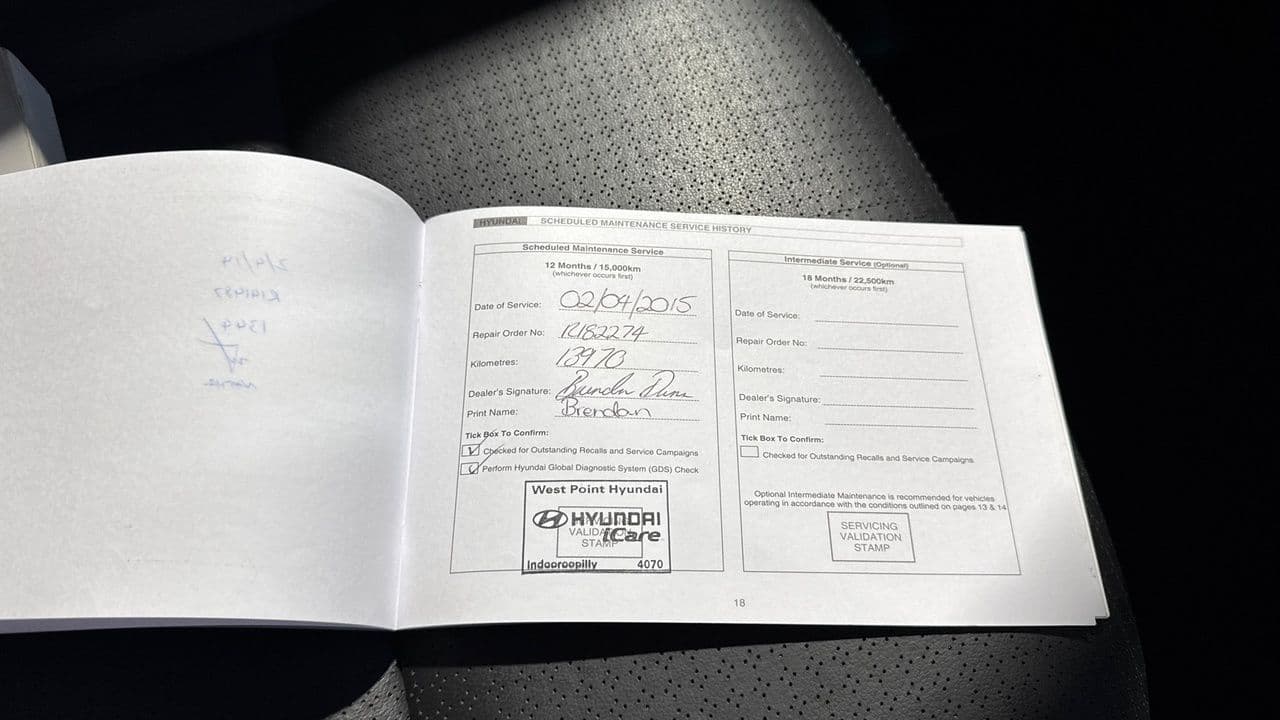 HYUNDAI SCHEDULED MAINTENANCE SERVICE HISTORY
Scheduled Maintenance Service
12 Months / 15,000km
(whichever occurs first)
Date of Service: 02/04/2015
Repair Order No: R182274
Kilometres: 13970
Dealer's Signature:
Print Name: Brendan
Tick Box To Confirm:
Checked for Outstanding Recalls and Service Campaigns
Perform Hyundai Global Diagnostic System (GDS) Check
West Point Hyundai
HYUNDAI
iCare
Indooroopilly 4070
Intermediate Service (Optional)
18 Months / 22,500km
(whichever occurs first)
Date of Service:
Repair Order No:
Kilometres:
Dealer's Signature:
Print Name:
Tick Box To Confirm:
Checked for Outstanding Recalls and Service Campaigns
Optional Intermediate Maintenance is recommended for vehicles
operating in accordance with the conditions outlined on pages 13 & 14
SERVICING
VALIDATION
STAMP
18